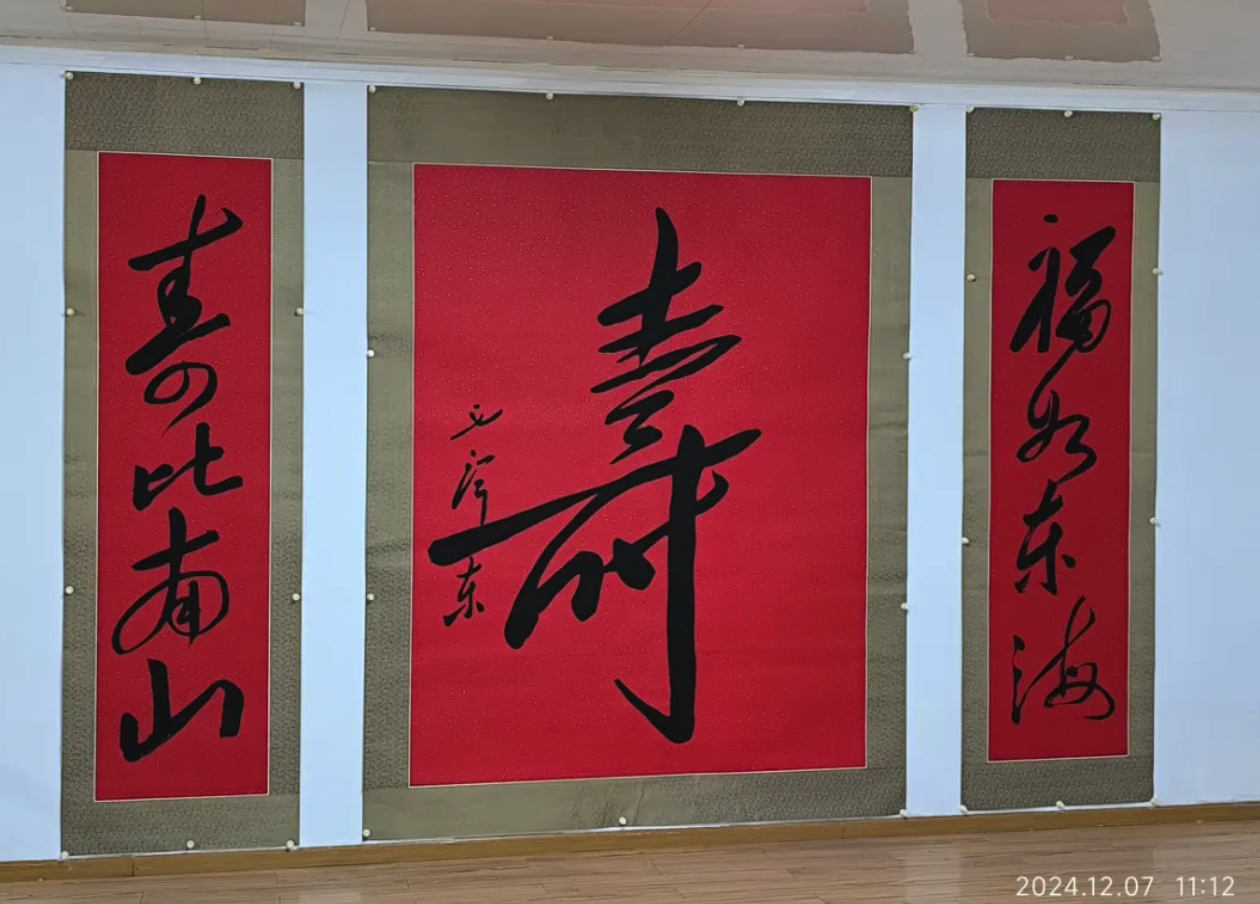 福如东海
壽
毛泽东
壽比南山
2024.12.07 11:12